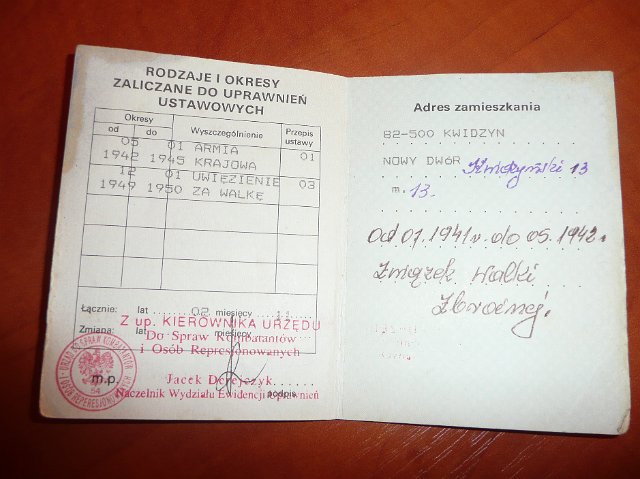 RODZAJE I OKRESY
ZALICZANE DO UPRAWNIEŃ
USTAWOWYCH
Okresy
od do
Wyszczególnienie
Przepis
ustawy
05 01 ARMIA 01
1942 1945 KRAJOWA
12 01 UWIĘZIENIE 03
1949 1950 ZA WALKĘ
Łącznie: lat 02 miesięcy 11
Zmiana: lat miesięcy
Z up. KIEROWNIKA URZĘDU
Do Spraw Kombatantów
i Osób Represjonowanych
m.p.
Jacek Dziejczyk
podpis
Naczelnik Wydziału Ewidencji Uprawnień
URZĄD DO SPRAW KOMBATANTÓW
I OSÓB REPRESJONOWANYCH
54
Adres zamieszkania
82-500 KWIDZYN
NOWY DWÓR Kwidzyński 13
m. 13.
od 07.1941 r. do 05.1942 r
Związek walki
Zbrojnej.